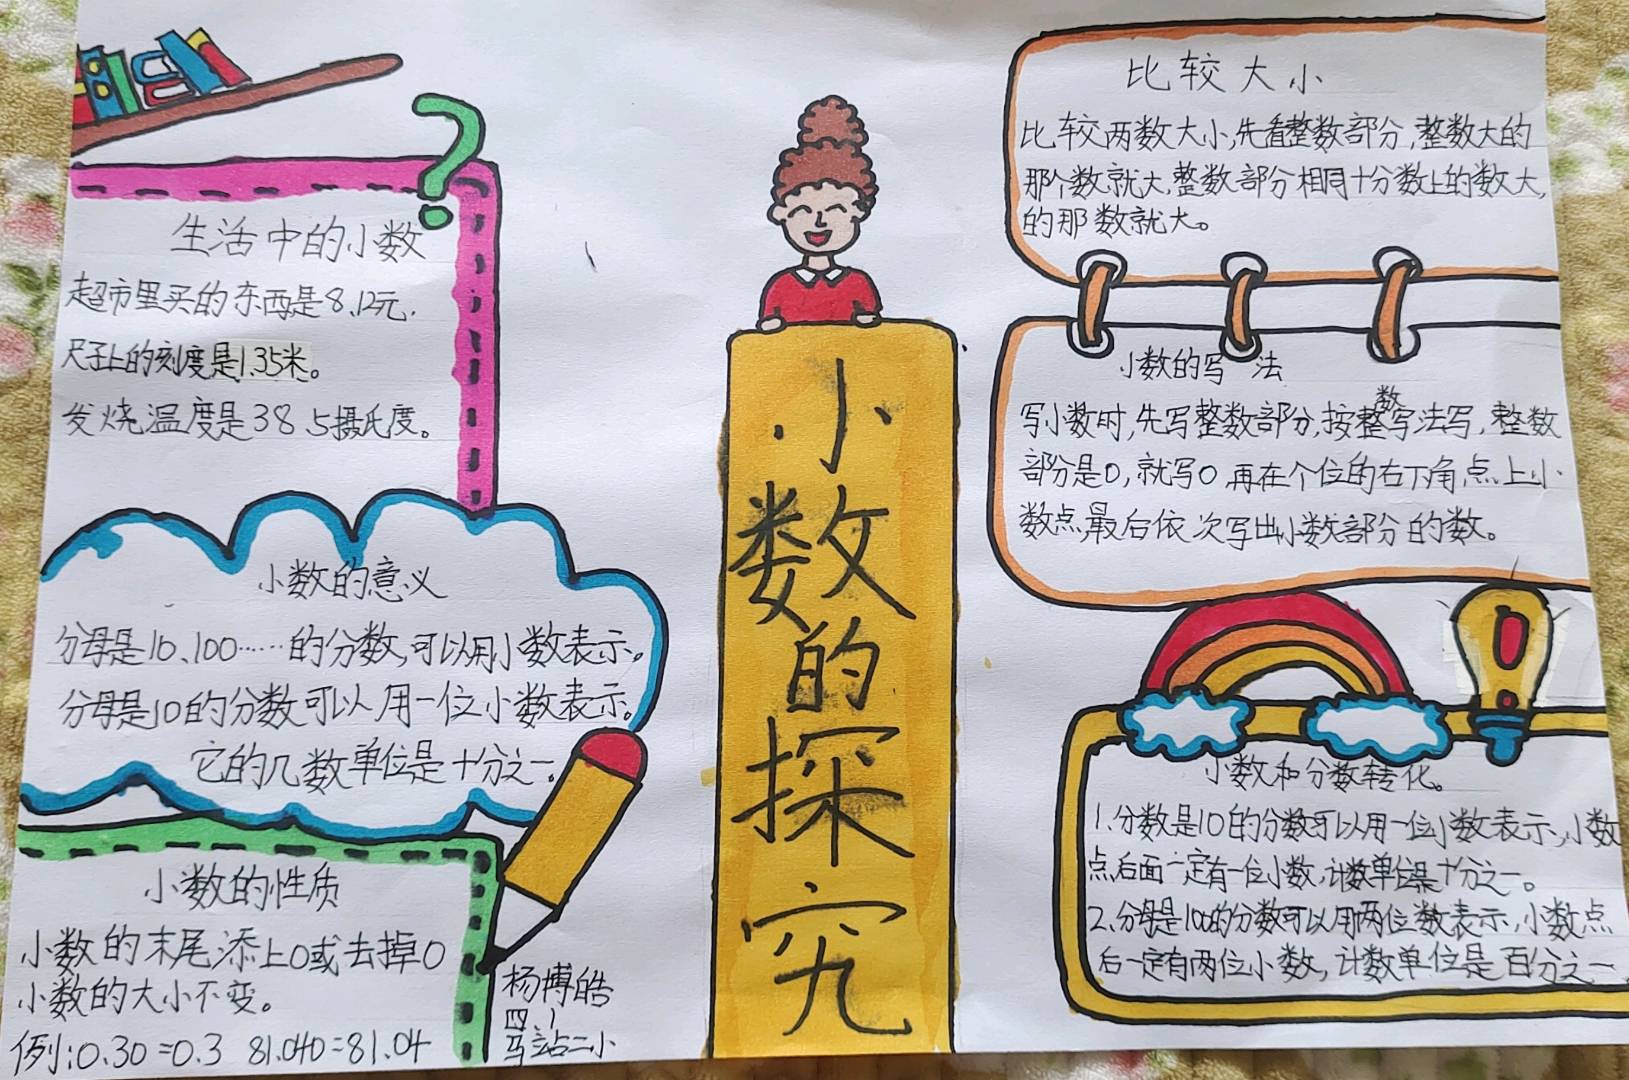 生活中的小数
超市里买的东西是8.12元.
尺子上的刻度是1.35米。
发烧温度是38.5摄氏度。
小数的意义
分母是10、100……的分数,可以用小数表示。
分母是10的分数可以用一位小数表示。
它的几数单位是十分之一。
小数的性质
小数的末尾添上0或去掉0
小数的大小不变。
例:0.30=0.3 81.040=81.04
杨博皓
四、1
马站二小
小数的探究
比较大小
比较两数大小,先看整数部分,整数大的
那个数就大,整数部分相同十分数上的数大,
的那数就大。
小数的写法
写小数时,先写整数部分,按整数写法写,整数
部分是0,就写0,再在个位的右下角点上小
数点,最后依次写出小数部分的数。
小数和分数转化。
1.分数是10的分数可以用一位小数表示,小数
点后面一定有一位小数,计数单位是十分之一。
2.分母是100的分数可以用两位数表示,小数点
后一定有两位小数,计数单位是百分之一